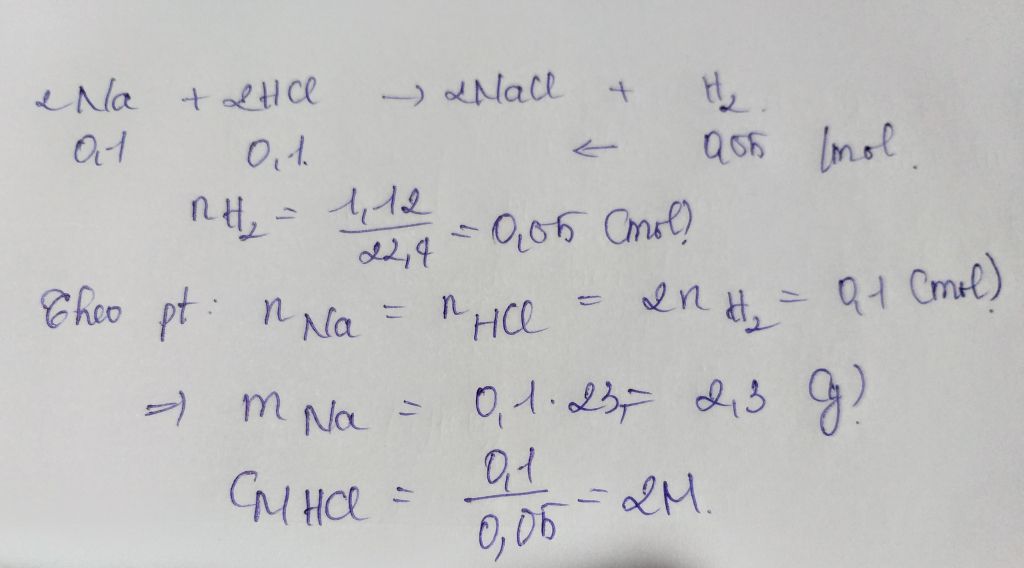 2Na + 2HCl → 2NaCl + H₂.
0,1 0,1. ← 0,05 (mol.
nH₂ = 1,12/22,4 = 0,05 (mol)
Theo pt: nNa = nHCl = 2nH₂ = 0,1 (mol)
⇒ mNa = 0,1.23 = 2,3 (g)
CM HCl = 0,1/0,05 = 2M.